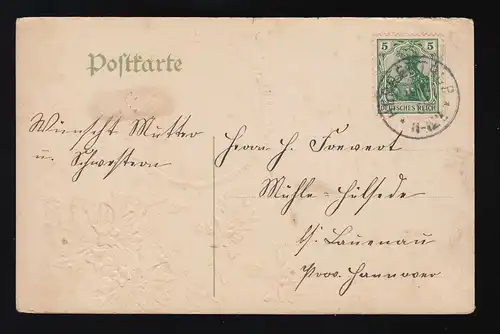 Postkarte
5 5
DEUTSCHES REICH
11-12
Wünscht Mutter
u. Schwestern
Herrn H. Foevert
Mühle-Hülsede
b/. Lauenau
Prov. Hannover